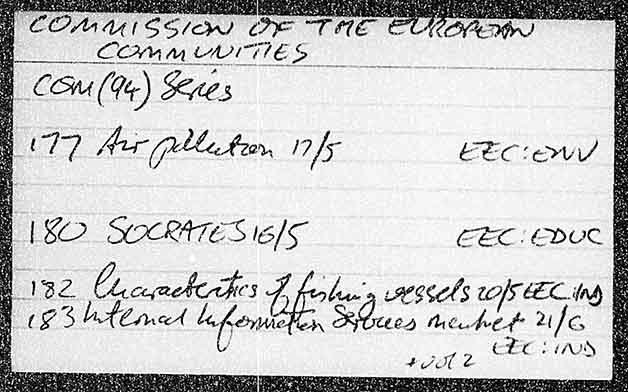 COMMISSION OF THE EUROPEAN
COMMUNITIES
COM(94) Series
177 Air pollution 17/5 EEC:ENV
180 SOCRATES 16/5 EEC:EDUC
182 Characteristics of fishing vessels 20/5 EEC:IND
183 Internal Information Services market 21/6
+ vol 2 EEC:IND